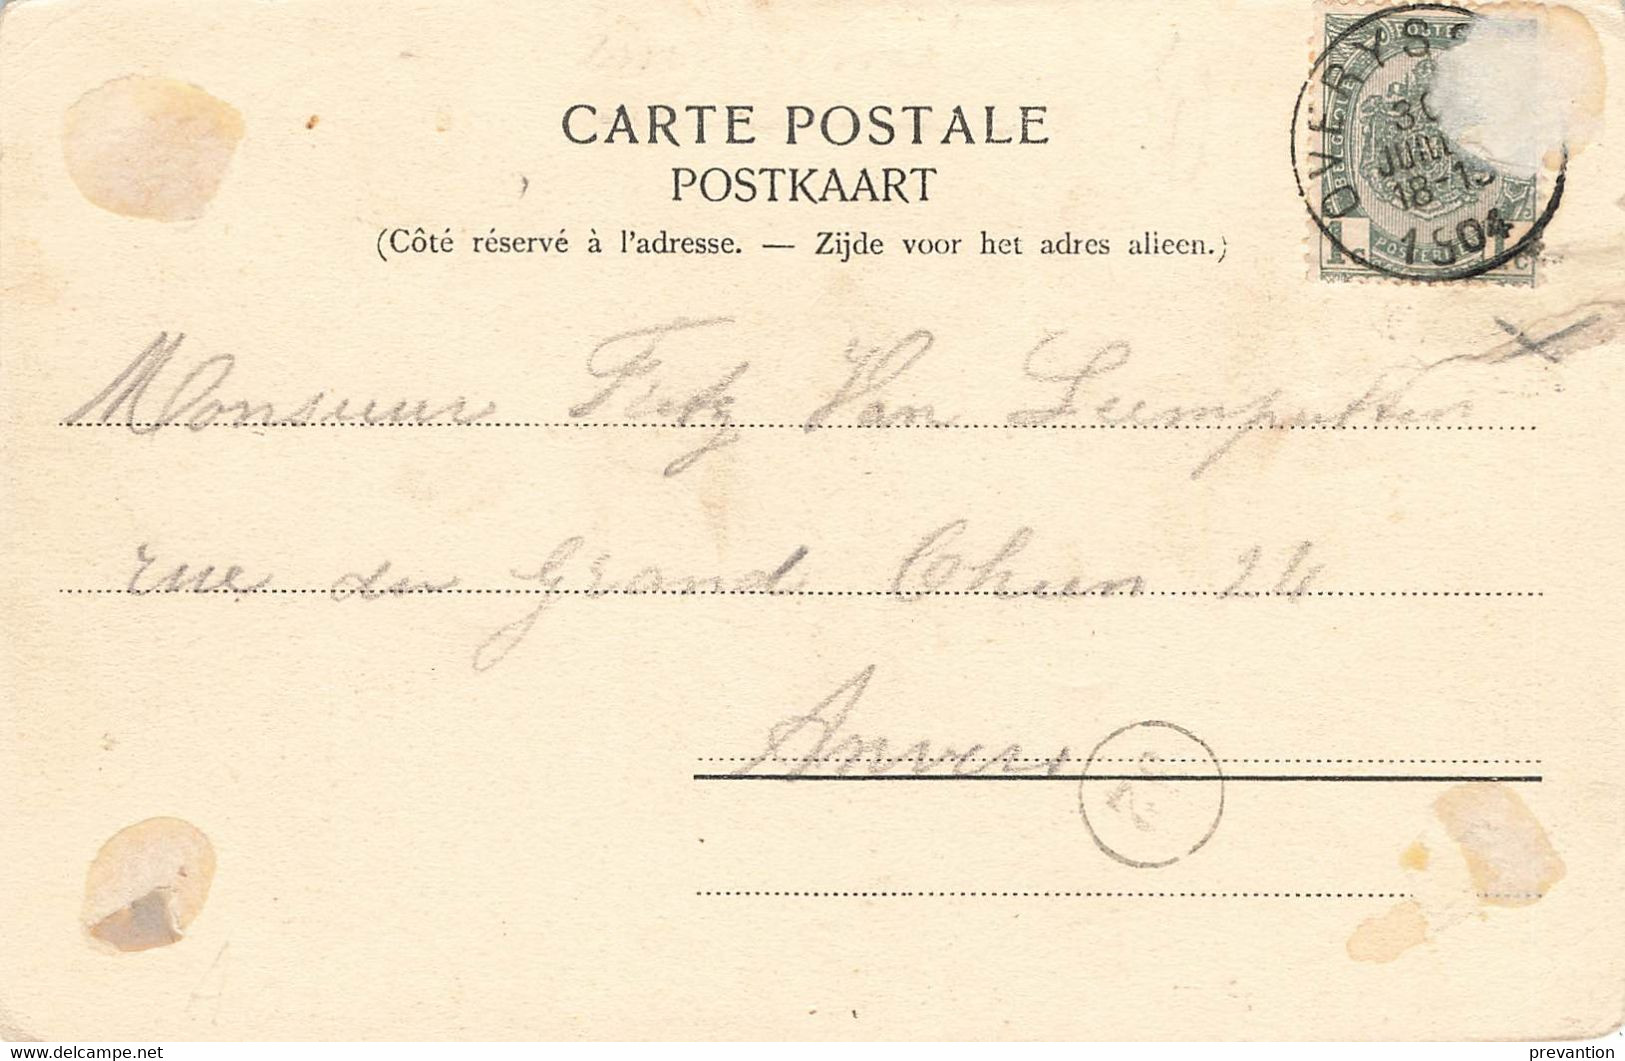 CARTE POSTALE
POSTKAART
(Côté réservé à l'adresse. — Zijde voor het adres alleen.)
OVERYS
30
JUIL
18-19
1904
BELGIQUE
1 c
Monsieur Fritz Van Lemputten
rue du Grand Chien 24
Anvers
delcampe.net
prevantion